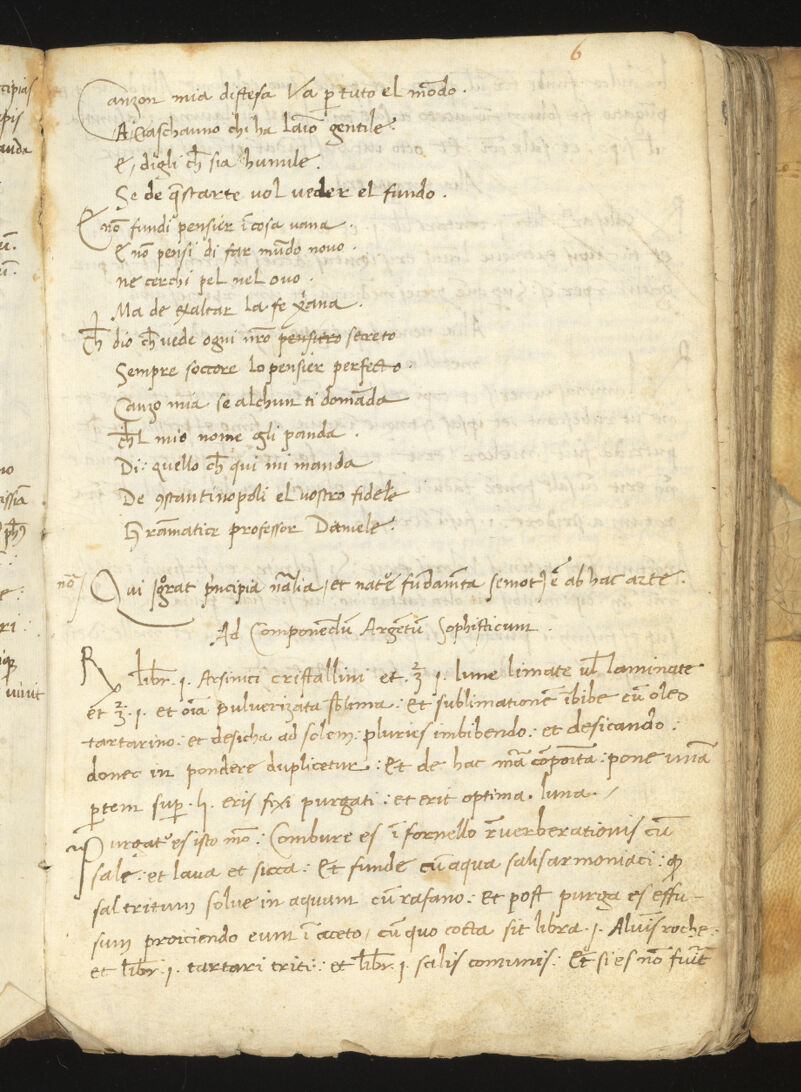 6
Canzon mia distesa Va p̄ tuto el mōdo.
A Ciaschauno chi ha laīo gentile:
Et digli ch̄ sia humile.
Se de q̄starte vol veder el fundo.
E nō fundi pensier ī cosa vana.
E nō pensi di far mūdo novo.
ne cerchi pel nel ovo.
Ma de exaltar la fe x̄ana.
Ch̄ dio ch̄ vede ogni nr̄o pensiero secreto
Sempre soccore lo pensier perfecto.
Canzo mia se alchun ti domāda
ch̄l mio nome gli panda.
Di: quello ch̄ qui mi manda
De 9stantinopoli el vostro fidele
Gramatice professor Daniele.
nō Qui īgorat pncipia nālia, et natᵉ fūdamta semotꝰ ē ab hac arte.
Ad Componēdū Argētū Sophisticum.
Rx libr. j. Arsinici cristallini et ℥ j. lune limate ul̄ laminate
et ℥. j. et oīa pulverizata sblima: Et sublimationē ībibe cū oleo
tartarino: et desicha ad solem: plurius imbibendo: et desicando:
donec in pondere duplicetur: Et de hac mā cōpoīta: pone unā
p̄tem sup. ij. eris fixi purgati: et erit optima luna.
Purgatᵉ es isto mō: Combure es ī fornello r̄verberationis cū
sale: et lava et sicca: Et funde cū aqua salis armoniaci: qd̄
sal tritum solve in aquam cū rafano: Et post purga es effu-
sum proiciendo eum ī aceto, cū quo cocta sit libra .j. Alumīs roche:
et libr. j. tartari triti: et libr. j. salis comunis: Et si es nō fuīt